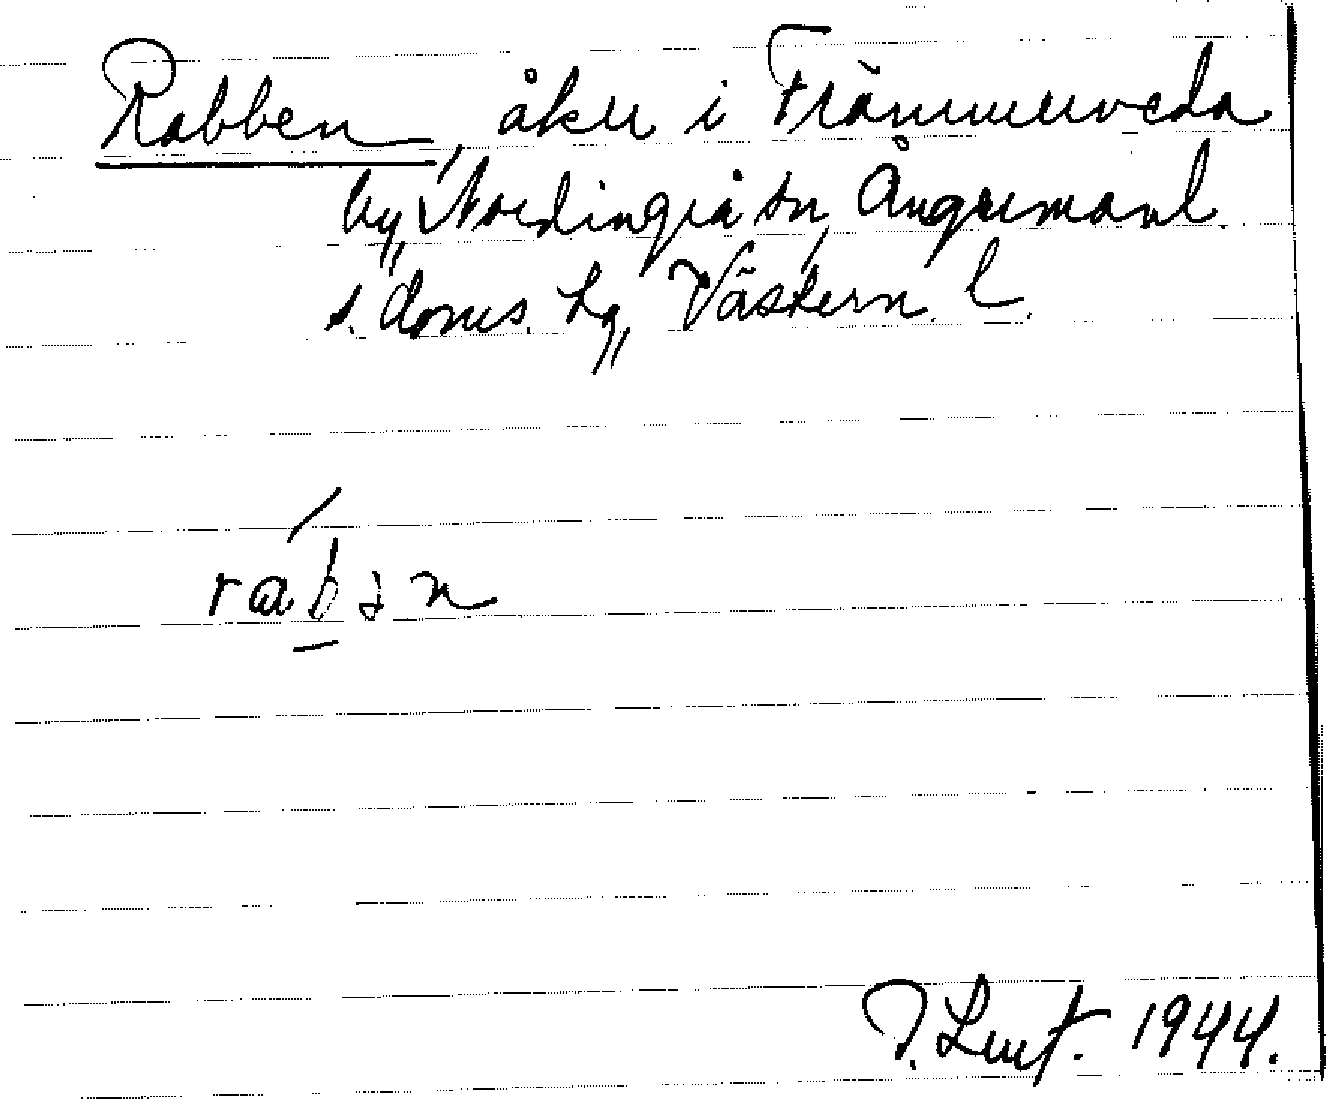 Rabben, åker i Främmerveda
by, Nordingrå sn, Ångermanl.
s. doms. hg, Västern. l.
rabən
1944.